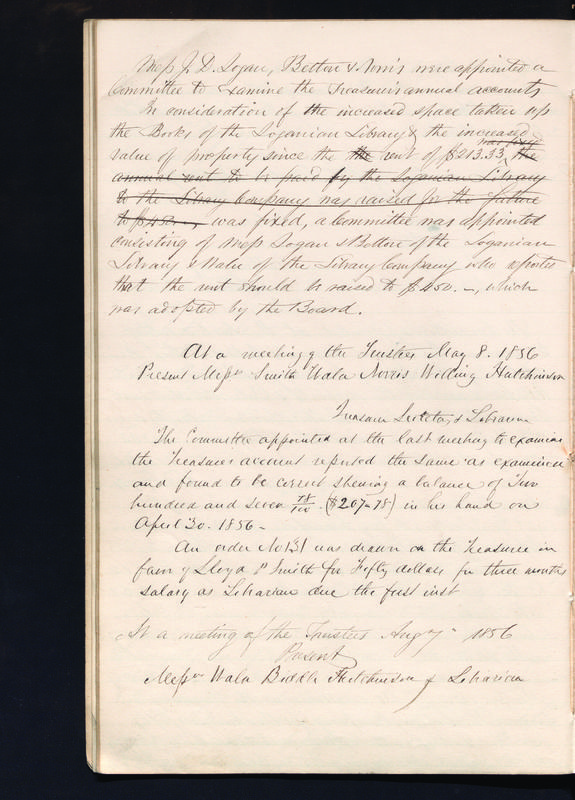 Mess J. D. Logan, Betton & Norris were appointed a
Committee to Examine the Treasurer's annual accounts
In consideration of the increased space taken up
the Books of the Loganian Library & the increased
value of property since the the rent of $213.33, the
annual rent to be paid by the Loganian Library
to the Library Company was raised for the future
to $450 was fixed, a Committee was appointed
consisting of Mess Logan & Betton of the Loganian
Library & Waln of the Library Company who reported
that the rent should be raised to $450.–, which
was adopted by the Board.
At a meeting of the Trustees May 8. 1856
Present Messrs Smith Waln Norris Willing Hutchinson
Treasurer Secretary & Librarian
The Committee appointed at the last meeting to examine
the Treasurers account reported the same as examined
and found to be correct shewing a balance of Two
hundred and seven 78/100 ($207.78) in his hand on
April 30. 1856–
An order No 131 was drawn on the Treasurer in
favor of Lloyd P Smith for Fifty dollars for three months
salary as Librarian due the first inst
At a meeting of the Trustees Aug 7 1856
Present
Messrs Waln Biddle Hutchinson & Librarian